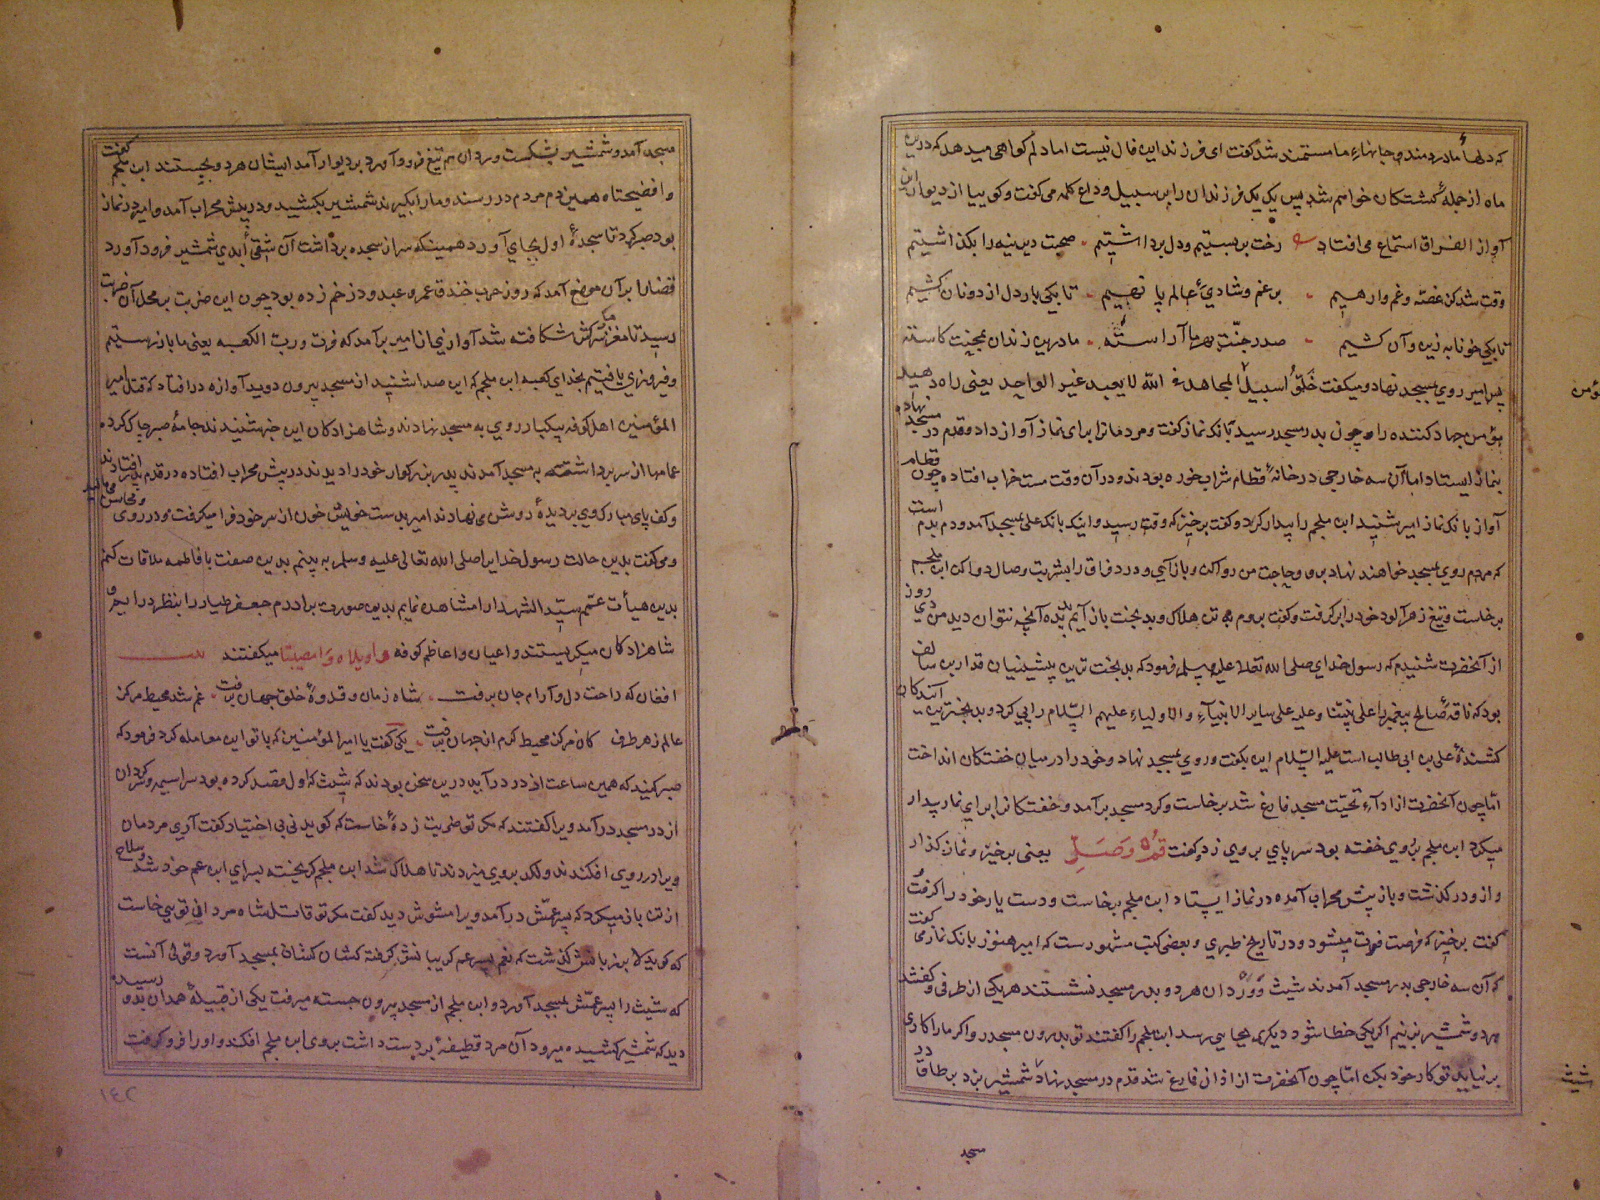 که دلهاء مادردمند و جانهاء ما مستمند شد گفت ای فرزند این فال نیست اما دلم گواهی میدهد که درین
ماه از جمله کشتکان خواهم شد پس یک یک فرزندان را برین سبیل وداع کلمه می گفت و کوییا از دیوان این
آواز الفراق استماع می افتاد رخت بر بستیم و دل برداشتیم صحبت دیرینه را بکذاشتیم
وقت شد کز غصه و غم وارهیم بر غم و شادیء عالم پا نهیم تا بکی بار دل از دونان کشیم
تا بکی خونابه زین و آن کشیم صدر جنت بهر ما آراسته مادرین زندان بمحنت کاسته
پس امیر روی بمسجد نهاد و میکفت خلوا سبیل المجاهد فی الله لا یعبد غیر الواحد یعنی راه دهید
مؤمن جهاد کننده را و چون بدر مسجد رسید بانک نماز کفت و مردمانرا برای نماز آواز داد و قدم در مسجد نهاد
بنماز ایستاد اما آن سه خارجی در خانهٔ قطام شراب خورده بودند و در آن وقت مست خراب افتاده چون قطام
آواز بانک نماز امیر شنید ابن ملجم را بیدار کرد و کفت برخیز که وقت رسید و اینک بانک علی بمسجد آمد و دم بدم است
که مردم روی بمسجد خواهند نهاد برو و حاجت من روا کن و باز آی و درد فراق را بشربت وصال دوا کن ابن ملجم
برخاست و تیغ زهر آلود خود را بر کرفت و کفت بروم و بدبخت باز آیم که آنچه نتوان دید من دی روز
از آنحضرت شنیدم که رسول خدای صلی الله تعالی علیه و سلم فرمود که بدبخت ترین پیشینیان قدار بن سالف
بود که ناقهٔ صالح پیغمبر را علی نبینا و علیه علی سایر الانبیآء والاولیاء علیهم السلام را پی کرد و بدبخترین آیندکان
کشندهٔ علی بن ابی طالب است علیه السلام این بکفت و روی بمسجد نهاد و خود را در میان خفتکان انداخت
امّا چون آنحضرت از ادآء تحیّت مسجد فارغ شد برخاست و کرد مسجد برآمد و خفتکانرا برای نماز بیدار
میکرد ابن ملجم بروی خفته بود سر پای بر وی زد و کفت قم و صلّ یعنی برخیز و نماز کذار
و ازو در کذشت و باز پیش محراب آمده در نماز ایستاد ابن ملجم برخاست و دست یار خود را کرفت
کفت برخیز که فرصت فوت میشود و در تاریخ طبری و بعضی کتب مشهورست که امیر هنوز بانک نماز می کفت
که آن سه خارجی بدر مسجد آمدند شیث و وردان هر دو بدر مسجد نشستند هر یکی از طرفی و کفتند
هر دو شمشیر بزنیم اکر یکی خطا شود دیکری بجایی رسد ابن ملجم را کفتند تو بدرون مسجد رو اکر ما را کاری
بر نیاید تو کار خود بکن امّا چون آنحضرت از اذان فارغ شد قدم در مسجد نهاد شمشیر بزد بر طاق در
مسجد
مؤمن
شیث
مسجد آمد و شمشیر بشکست وردان هم تیغ فرود آورد بر دیوار آمد ایشان هر دو بجستند ابن ملجم کفت
وافضیحتاه همین دم مردم در رسند و ما را بکیرند شمشیر بکشید و در پیش محراب آمد و امیر در نماز
بود صبر کرد تا سجدهٔ اول بجای آورد همینکه سر از سجده برداشت آن شقیّ ابدی شمشیر فرود آورد
قضارا بر آن موضع آمد که روز حرب خندق عمرو عبدود زخم زده بود چون این ضربت بر محل آن ضربت
رسید تا مغز سر مبارکش شکافته شد آواز از امیر برآمد که فزت و رب الکعبه یعنی ما باز رستیم
و فیروزی یافتیم بخدای کعبه ابن ملجم که این صدا شنید از مسجد بیرون دوید آوازه در افتاد که قتل امیر
المؤمنین اهل کوفه بیکبار روی به مسجد نهادند و شاهزادکان این خبر شنیدند جامهٔ صبر چاک کرده
عمامها از سر برداشته به مسجد آمدند پدر بزرکوار خود را دیدند در پیش محراب افتاده در قدم پدر افتادند
و کف پای مبارک وی بر دیدهٔ روشن می نهادند امیر بدست خویش خون از سر خود فرا میکرفت و در روی و محاسن می مالید
و می کفت بدین حالت رسول خدایرا صلی الله تعالی علیه و سلم به بینم بدین صفت با فاطمه ملاقات کنم
بدین هیأت عمّم سیّد الشهدا را مشاهده نمایم بدین صورت برادرم جعفر طیار را بنظر در آیم و
شاهزادکان میکریستند و اعیان و اعاظم کوفه واویلاه و امصیبتا میکفتند
افغان که راحت دل و آرام جان برفت شاه زمان و قدوهٔ خلق جهان برفت غم شد محیط مرکز
عالم ز هر طرف کان مرکز محیط کرم از جهان برفت یکی کفت یا امیر المؤمنین که با تو این معامله کرد فرمود که
صبر کنید که همین ساعت از در درآید درین سخن بودند که شیث که اول قصد کرده بود سراسیمه و کردان
از در مسجد درآمد ویرا کفتند که مکر تو ضربت زدهٔ خاست که کوید نی بی اختیار کفت آری مردمان
ویرا در روی افکندند و لکد بر وی میزدند تا هلاک شد ابن ملجم کریخته بسرای ابن عم خود شد و سلاح
از تن باز میکرد که پسر عمّش درآمد ویرا مشوش دید کفت مکر تو قاتل شاه مردانی تویی خاست
که کوید لا بر زبانش کذشت که نعم پسر عم کریبانش کرفته کشان کشان بمسجد آورد و قولی آنست
که شیث را پسر عمّش بمسجد آورد و ابن ملجم از مسجد بیرون جسته میرفت یکی از قبیلهٔ همدان بدو رسید
دید که شمشیر کشیده میرود آن مرد قطیفهٔ بر دست داشت بروی ابن ملجم افکند و او را فرو کرفت
۱۴۲